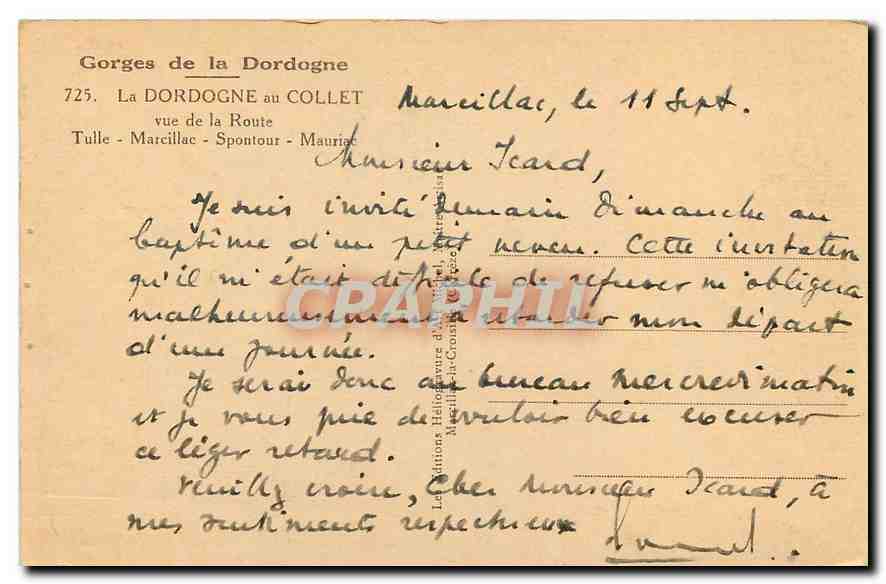 Gorges de la Dordogne
725. La DORDOGNE au COLLET
vue de la Route
Tulle - Marcillac - Spontour - Mauriac
Marcillac, le 11 Sept.
Monsieur Icard,
Je suis invité demain Dimanche au
baptême d'un petit neveu. Cette invitation
qu'il m'était difficile de refuser m'obligera
malheureusement à retarder mon départ
d'une journée.
Je serai donc au bureau mercredi matin
et je vous prie de vouloir bien excuser
ce léger retard.
Veuillez croire, Cher Monsieur Icard, à
mes sentiments respectueux
Les Editions Héliogravure d'Art
Marcillac-la-Croisille (Corrèze)
CPAPHIL